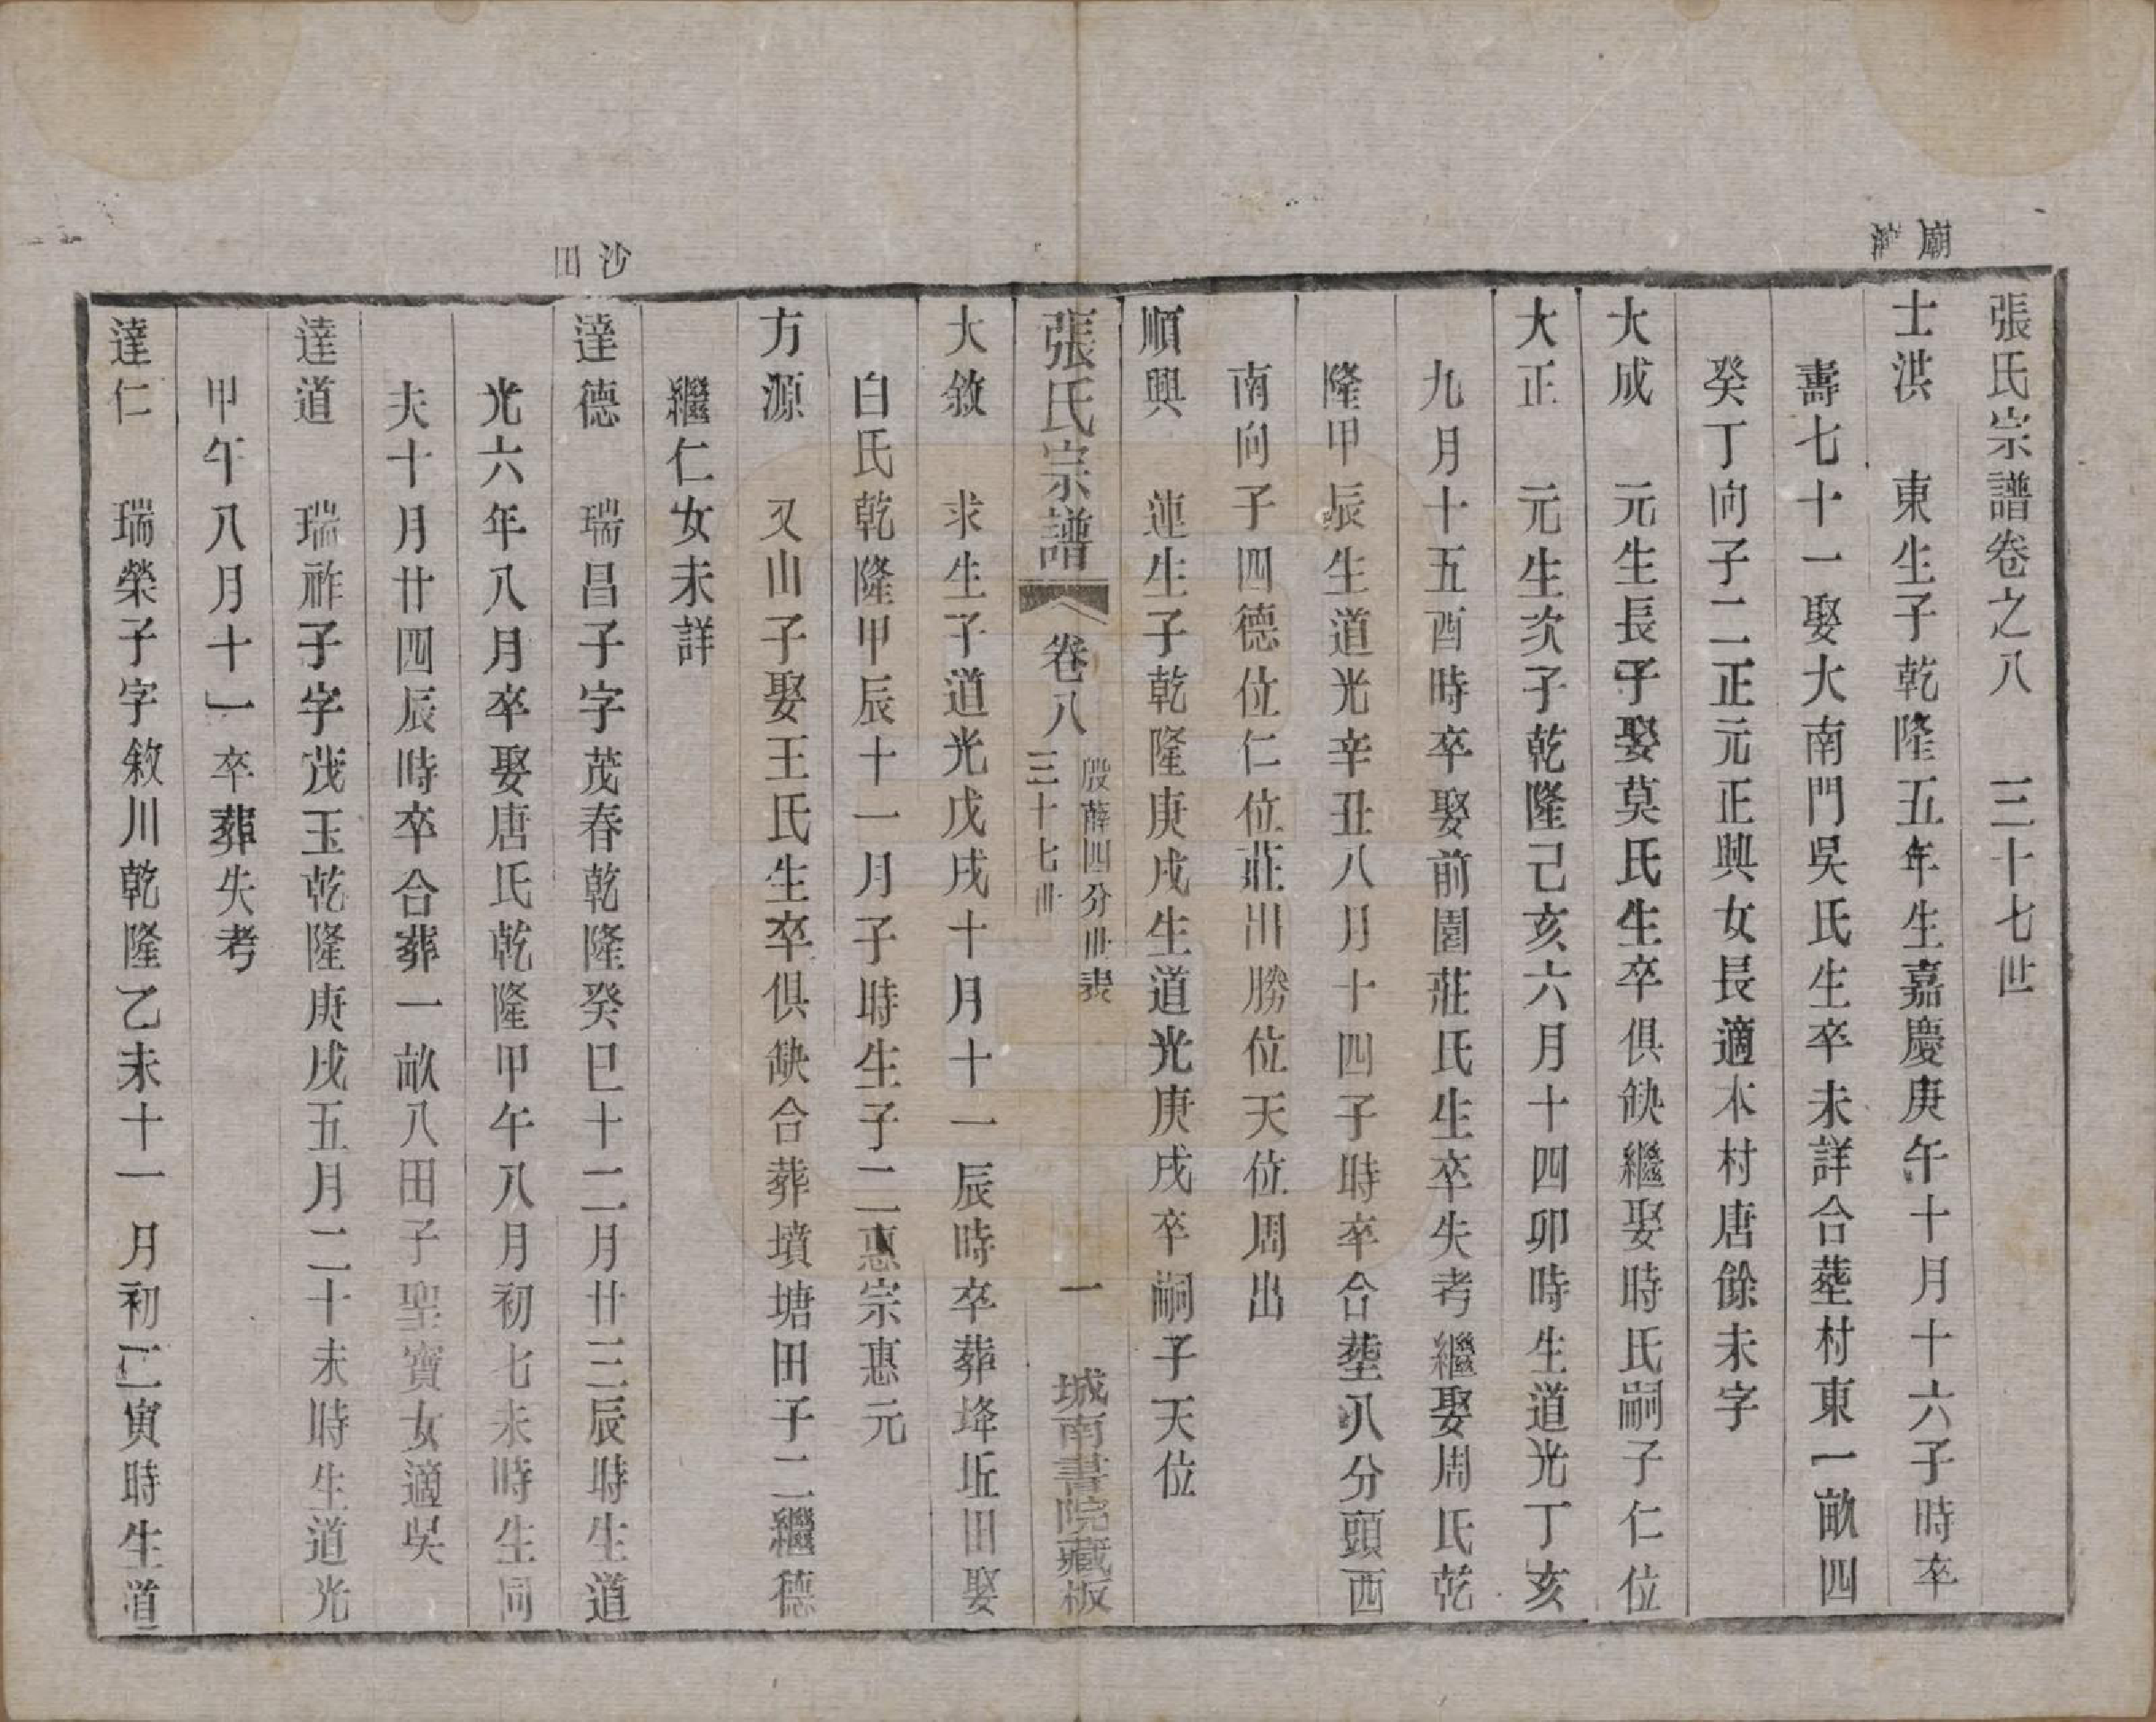 廟
張氏宗譜卷之八　三十七世
士洪　東生子乾隆五年生嘉慶庚午十月十六子時卒
壽七十一娶大南門吳氏生卒未詳合塟村東一畝四
癸丁向子二正元正興女長適本村唐餘未字
大成　元生長子娶莫氏生卒俱缺繼娶時氏嗣子仁位
大正　元生次子乾隆己亥六月十四卯時生道光丁亥
九月十五酉時卒娶前園莊氏生卒失考繼娶周氏乾
隆甲辰生道光辛丑八月十四子時卒合塟八分頭西
南向子四德位仁位莊出勝位天位周出
順興　連生子乾隆庚戌生道光庚戌卒嗣子天位
張氏宗譜　卷八　殷薛四分世表　三十七世　一　城南書院藏板
大敘　求生子道光戊戌十月十一辰時卒葬埄坵田娶
白氏乾隆甲辰十一月子時生子二惠宗惠元
方源　又山子娶王氏生卒俱缺合葬墳塘田子二繼德
繼仁女未詳
沙田
達德　瑞昌子字茂春乾隆癸巳十二月廿三辰時生道
光六年八月卒娶唐氏乾隆甲午八月初七未時生同
夫十月廿四辰時卒合葬一畝八田子聖寶女適吳
達道　瑞祚子字茂玉乾隆庚戌五月二十未時生道光
甲午八月十一卒葬失考
達仁　瑞榮子字敘川乾隆乙未十一月初二寅時生道